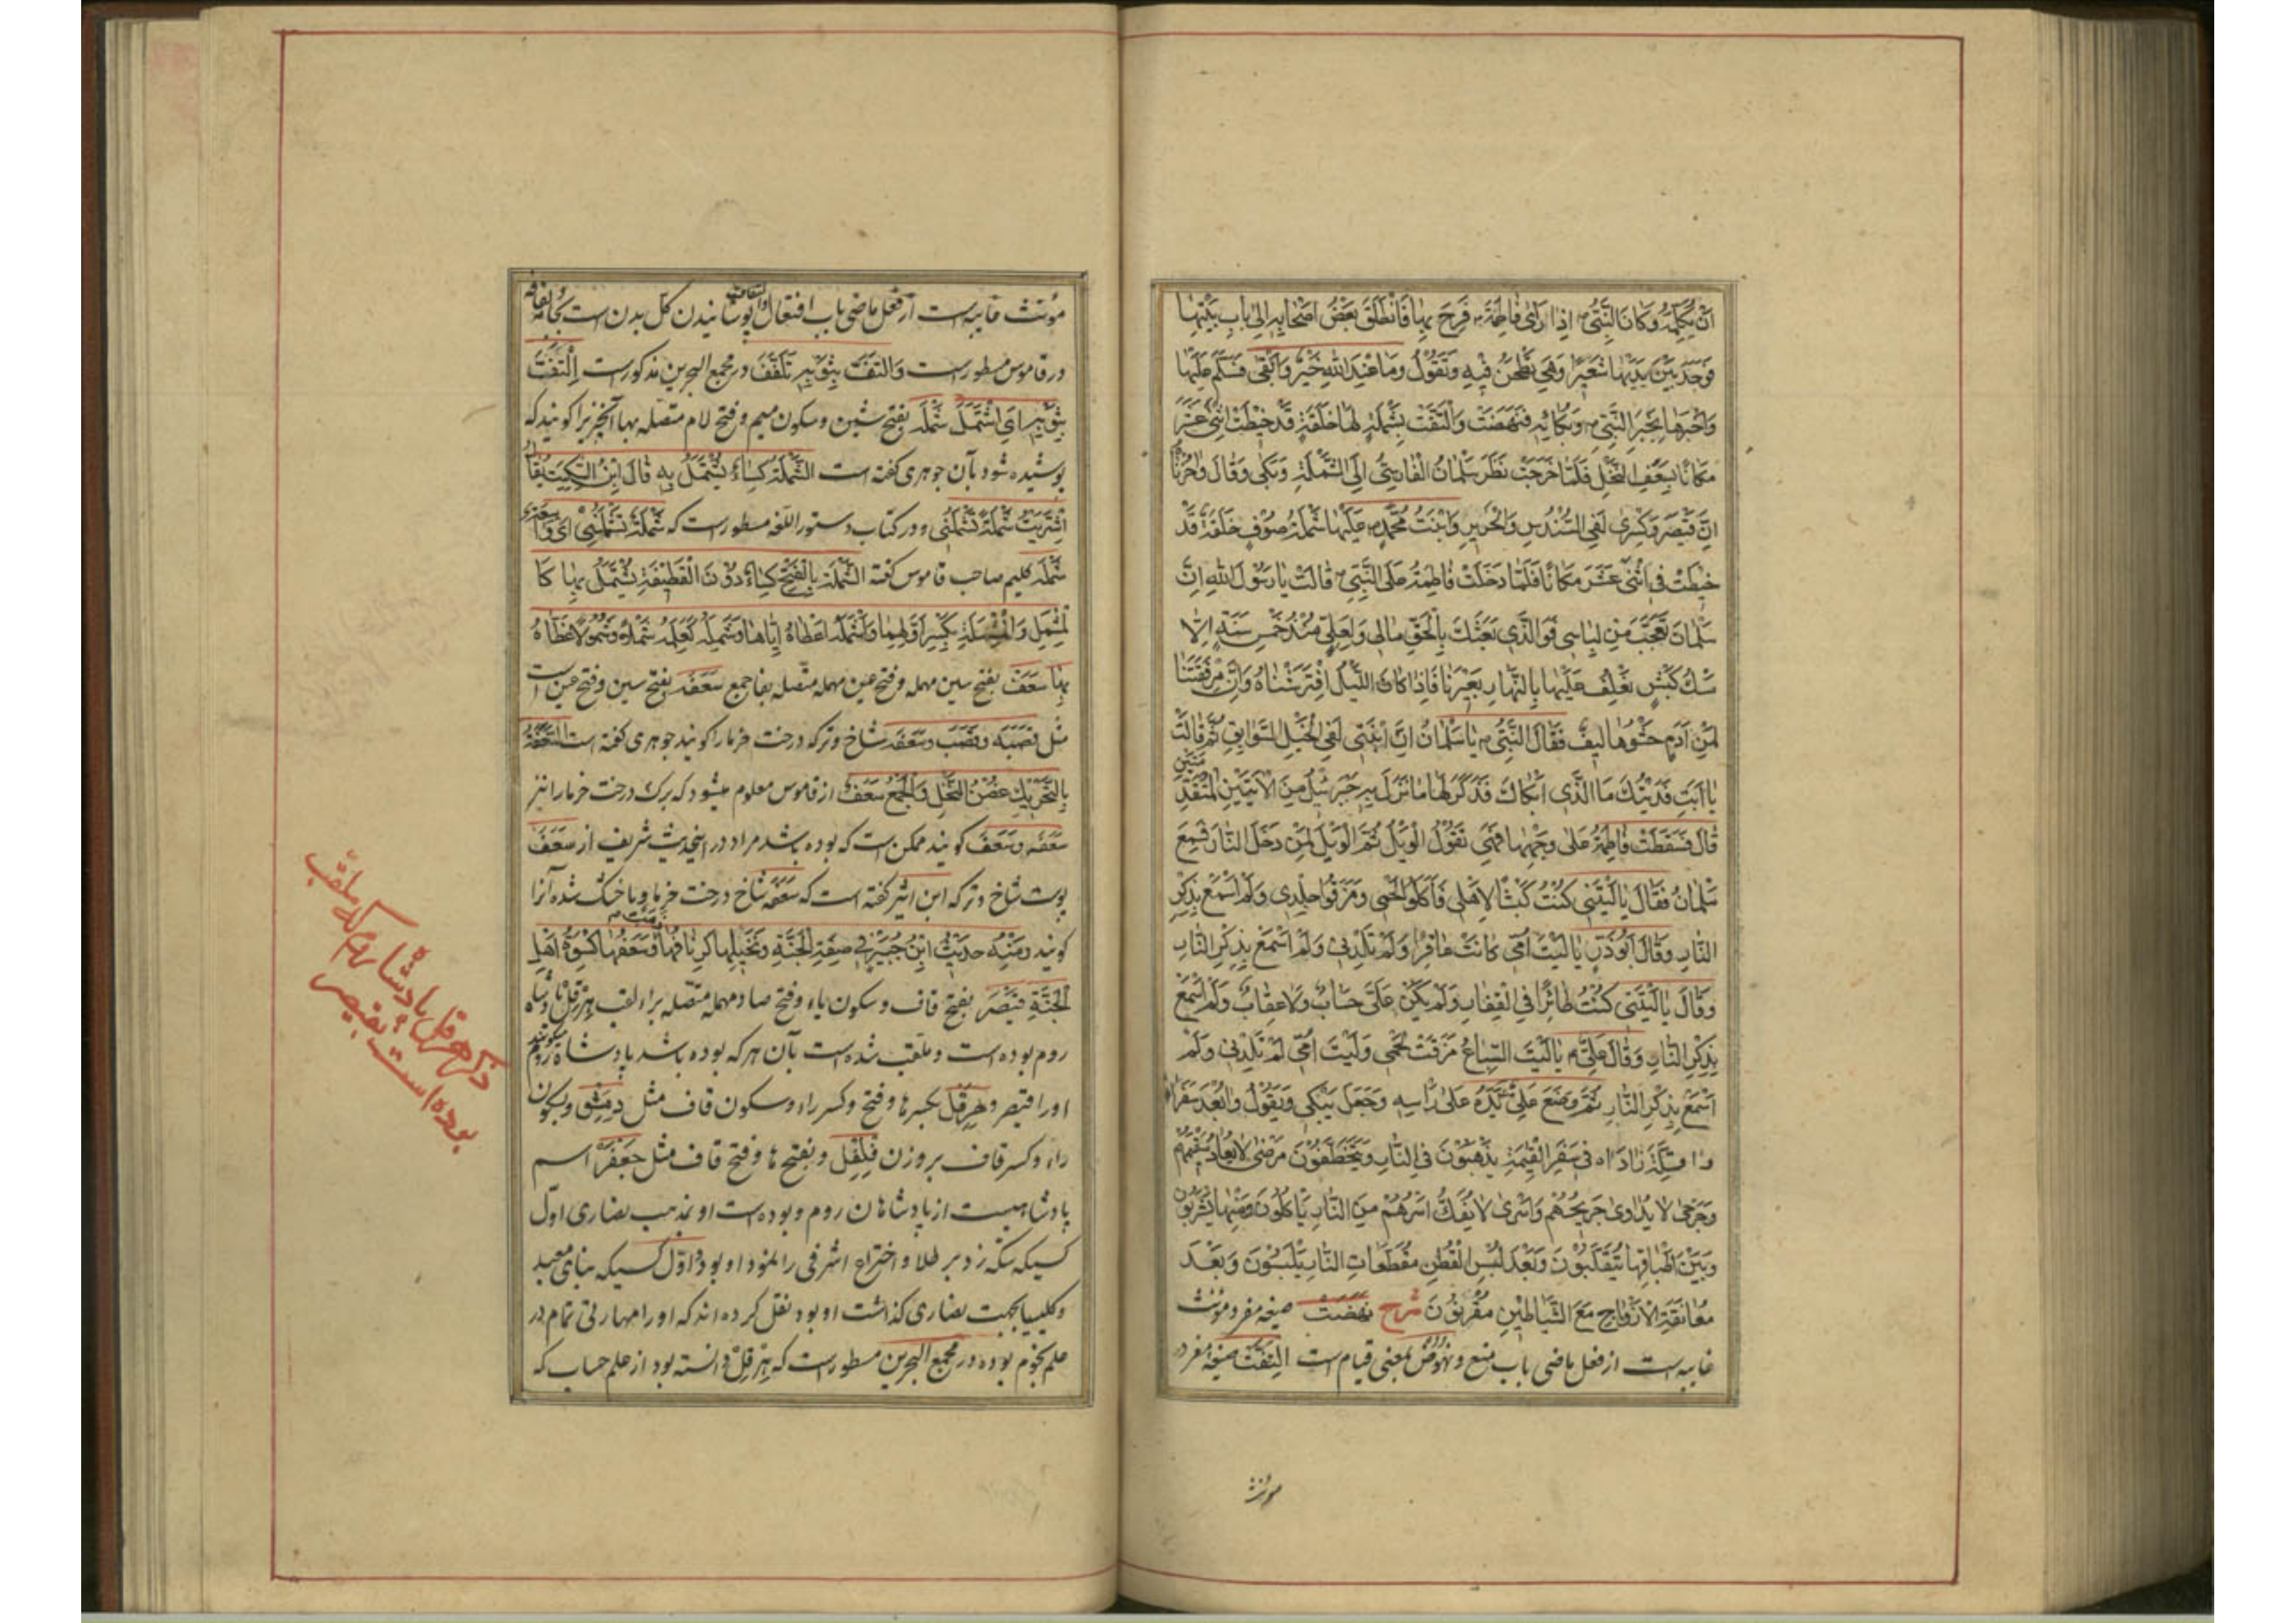 اَنْ يُكَلِّمَهُ وَكَانَ النَّبِىُّ ص اِذَا رَاَىٰ فَاطِمَةَ ع فَرِحَ بِهَا فَانْطَلَقَ بَعْضُ اَصْحَابِهِ اِلىٰ بَابِ بَيْتِهَا
فَوَجَدَ بَيْنَ يَدَيْهَا شَعِيْرًا وَهِيَ تَطْحَنُ فِيْهِ وَتَقُوْلُ وَمَا عِنْدَ اللهِ خَيْرٌ وَاَبْقىٰ فَسَلَّمَ عَلَيْهَا
وَاَخْبَرَهَا بِخَبَرِ النَّبِىِّ ص وَبُكَائِهِ فَنَهَضَتْ وَالْتَفَّتْ بِشَمْلَةٍ لَهَا خَلَقَةٍ قَدْ خِيْطَتْ اثْنَىْ عَشَرَ
مَكَانًا بِسَعَفِ النَّخْلِ فَلَمَّا خَرَجَتْ نَظَرَ سَلْمَانُ الْفَارِسِىُّ اِلَى الشَّمْلَةِ وَبَكٰى وَقَالَ وَاحُزْنَاهُ
اِنَّ قَيْصَرَ وَكِسْرٰى لَفِى السُّنْدُسِ وَالْحَرِيْرِ وَابْنَتُ مُحَمَّدٍ ص عَلَيْهَا شَمْلَةُ صُوْفٍ خَلَقَةٌ قَدْ
خِيْطَتْ فِى اثْنَىْ عَشَرَ مَكَانًا فَلَمَّا دَخَلَتْ فَاطِمَةُ عَلَى النَّبِىِّ ص قَالَتْ يَا رَسُوْلَ اللهِ اِنَّ
سَلْمَانَ تَعَجَّبَ مِنْ لِبَاسِى فَوَالَّذِى بَعَثَكَ بِالْحَقِّ مَالِى وَلِعَلِىٍّ مُنْذُ خَمْسِ سَنَةٍ اِلَّا
مَسْكُ كَبْشٍ نَعْلِفُ عَلَيْهَا بِالنَّهَارِ بَعِيْرَنَا فَاِذَا كَانَ اللَّيْلُ افْتَرَشْنَاهُ وَاِنَّ مِرْفَقَتَنَا
لَمِنْ اَدَمٍ حَشْوُهَا لِيْفٌ فَقَالَ النَّبِىُّ ص يَا سَلْمَانُ اِنَّ ابْنَتِى لَفِى الْخَيْلِ السَّوَابِقِ ثُمَّ قَالَتْ
يَا اَبَتِ فَدَيْتُكَ مَا الَّذِى اَبْكَاكَ فَذَكَرَ لَهَا مَا نَزَلَ بِهِ جَبْرَئِيْلُ مِنَ الْاٰيَتَيْنِ الْمُتَقَدِّمَتَيْنِ
قَالَ فَسَقَطَتْ فَاطِمَةُ عَلىٰ وَجْهِهَا فَهِىَ تَقُوْلُ الْوَيْلُ ثُمَّ الْوَيْلُ لِمَنْ دَخَلَ النَّارَ فَسَمِعَ
سَلْمَانُ فَقَالَ يَا لَيْتَنِى كُنْتُ كَبْشًا لِاَهْلِى فَاَكَلُوْا لَحْمِى وَمَزَقُوْا جِلْدِى وَلَمْ اَسْمَعْ بِذِكْرِ
النَّارِ وَقَالَ اَبُوْذَرٍّ يَا لَيْتَ اُمِّى كَانَتْ عَاقِرًا وَلَمْ تَلِدْنِى وَلَمْ اَسْمَعْ بِذِكْرِ النَّارِ
وَقَالَ يَا لَيْتَنِى كُنْتُ طَائِرًا فِى الْقِفَارِ وَلَمْ يَكُنْ عَلَىَّ حِسَابٌ وَلَا عِقَابٌ وَلَمْ اَسْمَعْ
بِذِكْرِ النَّارِ وَقَالَ عَلِىٌّ ع يَا لَيْتَ السِّبَاعُ مَزَقَتْ لَحْمِى وَلَيْتَ اُمِّى لَمْ تَلِدْنِى وَلَمْ
اَسْمَعْ بِذِكْرِ النَّارِ ثُمَّ وَضَعَ عَلِىٌّ يَدَهُ عَلىٰ رَاْسِهِ وَجَعَلَ يَبْكِى وَيَقُوْلُ وَابُعْدَ سَفَرَاهُ
وَا قِلَّةَ زَادَاه فِى سَفَرِ الْقِيٰمَةِ يَذْهَبُوْنَ فِى النَّارِ وَيَتَخَطَّفُوْنَ مَرْضىٰ لَا يُعَادُ سَقِيْمُهُمْ
وَجَرْحىٰ لَا يُدَاوىٰ جَرِيْحُهُمْ وَاَسْرىٰ لَا يُفَكُّ اَسْرُهُمْ مِنَ النَّارِ يَاْكُلُوْنَ وَمِنْهَا يَشْرَبُوْنَ
وَبَيْنَ اَطْبَاقِهَا يَتَقَلَّبُوْنَ وَبَعْدَ لُبْسِ الْقُطْنِ مُقَطَّعَاتِ النَّارِ يَلْبَسُوْنَ وَبَعْدَ
مُعَانَقَةِ الْاَزْوَاجِ مَعَ الشَّيَاطِيْنِ مُقَرَّنُوْنَ شرح نَهَضَتْ صیغه مفرد مؤنث
غایبه است از فعل ماضی باب منع و نهوض بمعنی قیام است اِلْتَفَّتْ صیغه مفرد
مونث
مؤنث غایبه است از فعل ماضی باب افتعال و التفات پوشانیدن کل بدن است بجامه
در قاموس مسطور است وَالْتَفَّ بِثَوْبِهِ تَلَفَّفَ در مجمع البحرین مذکور است اِلْتَفَّتْ
بِثَوْبِهَا اَىِ اشْتَمَلَ شَمْلَه بفتح شین و سکون میم و فتح لام متصله بها آنچیز را گویند که
پوشیده شود بآن جوهری گفته است الشَّمْلَةُ كِسَاءٌ يُشْتَمَلُ بِهِ قَالَ ابْنُ السِّكِّيْتِ يُقَالُ
اِشْتَرَيْتُ شَمْلَةً تَشْمَلُنِى و در کتاب دستور اللغه مسطور است که شَمْلَةً تَشْمَلُنِىْ اَىْ
شَمْلَه گلیم صاحب قاموس گفته الشَّمْلَةُ بِالْفَتْحِ كِسَاءٌ دُوْنَ الْقَطِيْفَةِ يُشْتَمَلُ بِهَا كَا
لْمِشْمَلِ وَالْمِشْمَلَةِ بِكَسْرِ اَوَّلِهِمَا وَاَشْمَلَهُ اَعْطَاهُ اِيَّاهَا وَشَمِلَهُ كَعَلِمَهُ شَمْلًا وَشُمُوْلًا غَطَّاهُ
بِهَا سَعَف بفتح سین مهمله و فتح عین مهمله متصله بفا جمع سَعَفَه بفتح سین و فتح عین است
مثل قَصَبَه و قَصَب و سَعَفَه شاخ و ترکه درخت خرما را گویند جوهری گفته است السَّعَفَةُ
بِالتَّحْرِيْكِ غُصْنُ النَّخْلِ وَالْجَمْعُ سَعَفٌ از قاموس معلوم میشود که برگ درخت خرما را نیز
سَعَفَه و سَعَف گویند ممکن است که بوده باشد مراد در اینحدیث شریف از سَعَف
پوست شاخ و ترکه ابن اثیر گفته است که سَعَفَه شاخ درخت خرما و یا خشک شده آنرا
گویند وَمِنْهُ حَدِيْثُ ابْنِ جُبَيْرٍ فِىْ صِفَةِ الْجَنَّةِ وَنَخِيْلِهَا كَرَبُهَا وَسَعَفُهَا كِسْوَةُ اَهْلِ
الْجَنَّةِ قَيْصَر بفتح قاف و سکون یاء و فتح صاد مهمله متصله براء لقب هِرَقْل پادشاه
روم بوده است و ملقب شده است بآن هر که بوده باشد پادشاه روم میگویند
او را قیصر و هِرَقْل بکسر ها و فتح و کسر راء و سکون قاف مثل دِمَشْق و بسکون
راء و کسر قاف بر وزن فِلْفِل و بفتح ها و فتح قاف مثل جَعْفَر اسم
پادشاهیست از پادشاهان روم و بوده است او بمذهب نصاری اول
کسیکه سکه زد بر طلا و اختراع اشرفی را نمود او بود و اول کسیکه بنای معبد
و کلیسیا بجهت نصاری گذاشت او بود نقل کرده اند که او را مهارتی تمام در
علم نجوم بوده در مجمع البحرین مسطور است که هِرَقْل دانسته بود از علم حساب که
ذکر هرقل پادشاه روم که ملقب
بوده است بقیصر